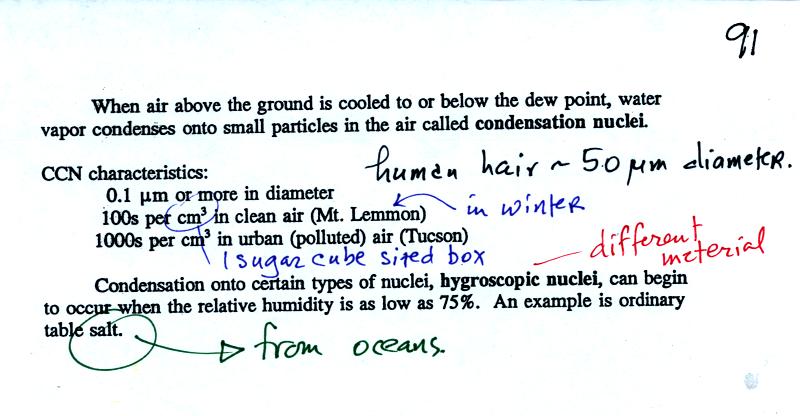 91
When air above the ground is cooled to or below the dew point, water
vapor condenses onto small particles in the air called condensation nuclei.
CCN characteristics:
human hair ~ 50 μm diameter.
0.1 μm or more in diameter
100s per cm³ in clean air (Mt. Lemmon)
in winter
1000s per cm³ in urban (polluted) air (Tucson)
1 sugar cube sized box
different
material
Condensation onto certain types of nuclei, hygroscopic nuclei, can begin
to occur when the relative humidity is as low as 75%. An example is ordinary
table salt.
from oceans.